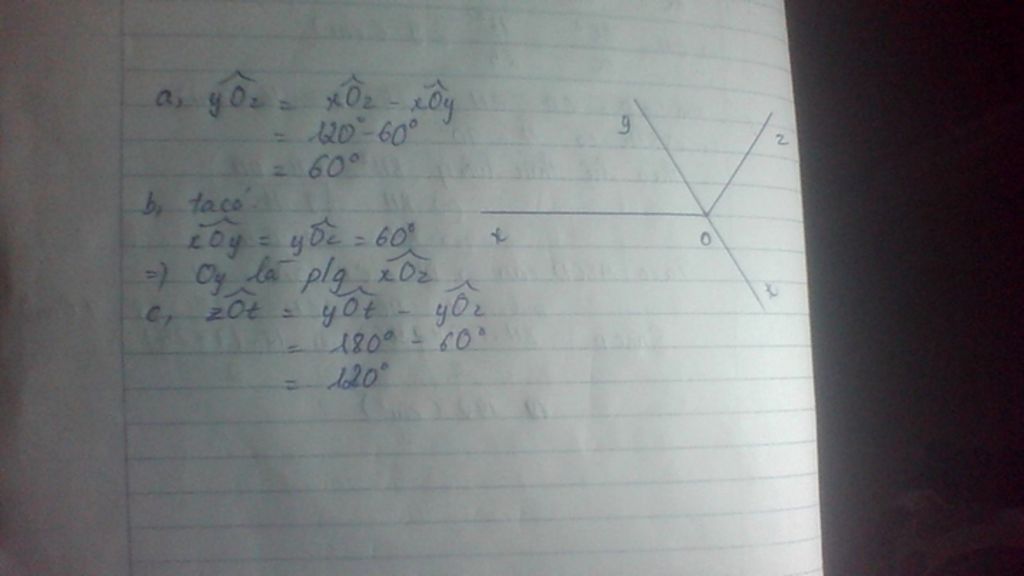 a, yÔz = xÔz - xÔy
= 120° - 60°
= 60°
b, ta có
xÔy = yÔz = 60°
=) Oy là p/g xÔz
c, zÔt = yÔt - yÔz
= 180° - 60°
= 120°
y
z
x
O